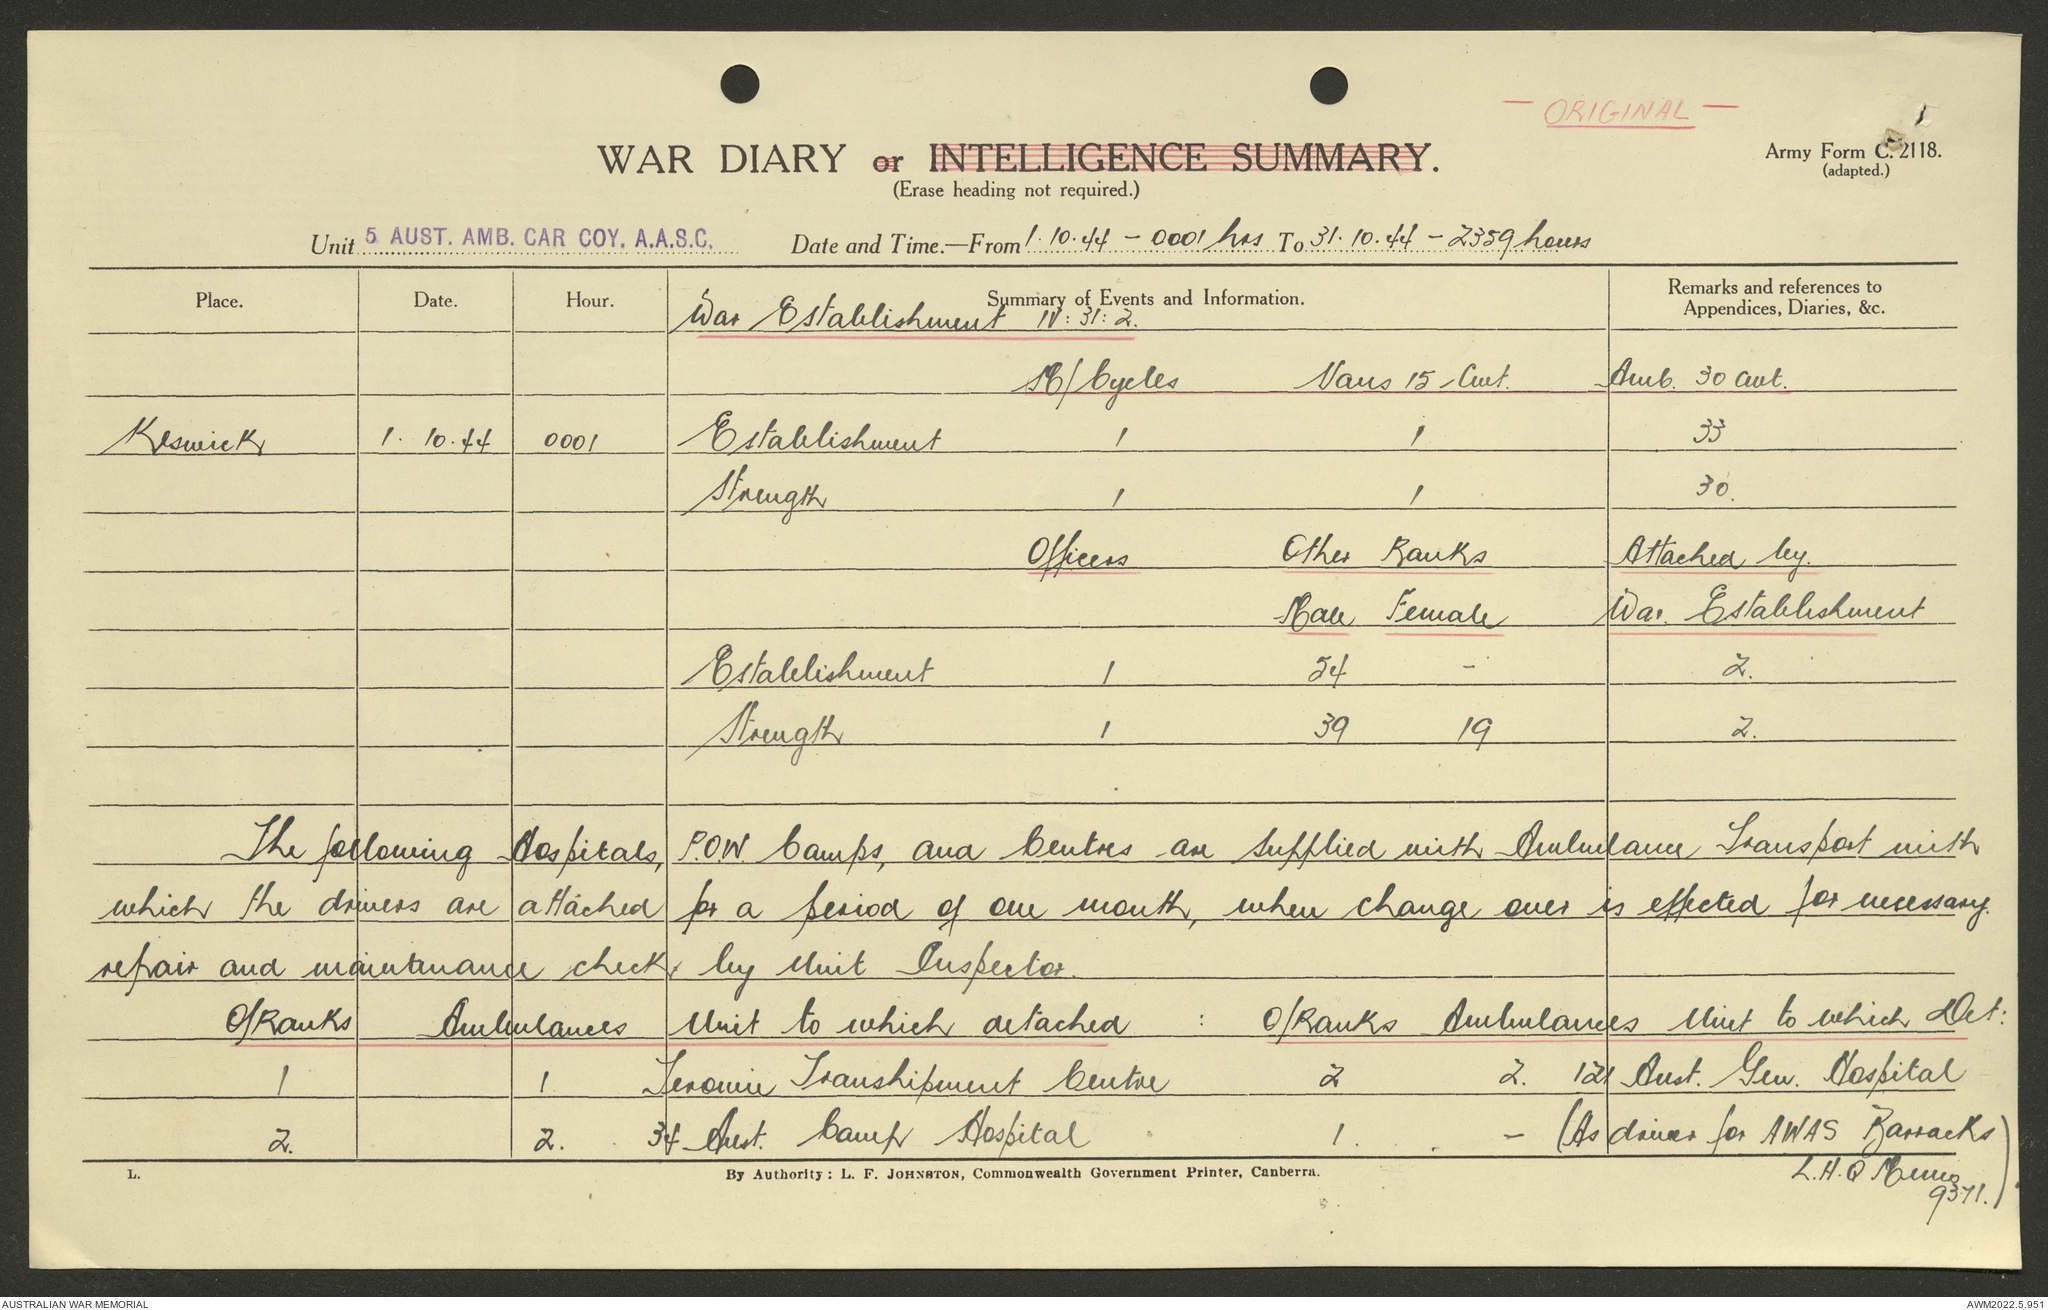 — ORIGINAL —
1
WAR DIARY or INTELLIGENCE SUMMARY.
Army Form C. 2118.
(adapted.)
(Erase heading not required.)
Unit 5 AUST. AMB. CAR COY. A.A.S.C. Date and Time.—From 1.10.44 – 0001 hrs To 31.10.44 – 2359 hours
Place. Date. Hour. Summary of Events and Information. Remarks and references to Appendices, Diaries, &c.
War Establishment IV: 31: 2.
M/Cycles Vans 15-Cwt. Amb. 30 cwt.
Keswick 1.10.44 0001 Establishment 1 1 33
Strength 1 1 30.
Officers Other Ranks Attached by.
Male Female War Establishment
Establishment 1 54 - 2.
Strength 1 39 19 2.
The following Hospitals, P.O.W. Camps, and Centres are supplied with Ambulance Transport with
which the drivers are attached for a period of one month, when change over is effected for necessary
repair and maintenance check by Unit Inspector.
O/Ranks Ambulances Unit to which detached : O/Ranks Ambulances Unit to which Det:
1 1 Terowie Transhipment Centre 2 2. 121 Aust. Gen. Hospital
2. 2. 34 Aust. Camp Hospital 1. – (As driver for AWAS Barracks
L.H.Q Memo 9371.)
L. By Authority: L. F. JOHNSTON, Commonwealth Government Printer, Canberra.
AUSTRALIAN WAR MEMORIAL AWM2022.5.951